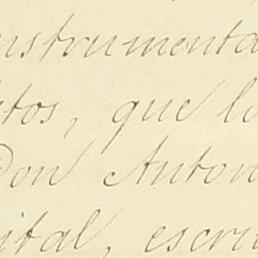 instrumenta
tos, que lo
Don Anton
ital, escri